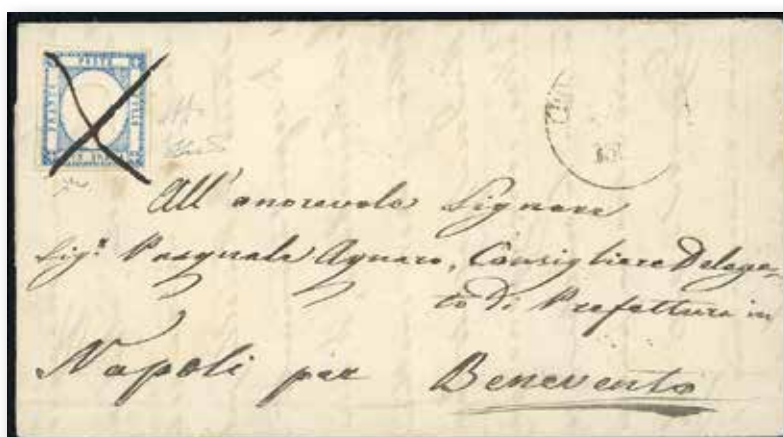 POSTE
FRANCO
BOLLO
All' onorevole Signore
Sig.r Pasquale Aynaro, Consigliere Delega-
to di Prefettura in
Napoli per Benevento